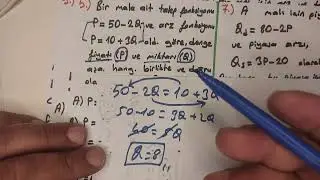 Bir mala ait talep fonksiyonu
P=50-2Q ve arz fonksiyonu
P=10+3Q old. göre, denge
fiyatı (P) ve miktarı (Q)
hang. birlikte ve doğru
50-2Q=10+3Q
50-10=3Q+2Q
40=5Q
Q=8
C A) P:
A)
7.) A malı
Qd=80-2P
ve piyasa arzı,
Qs=3P-20